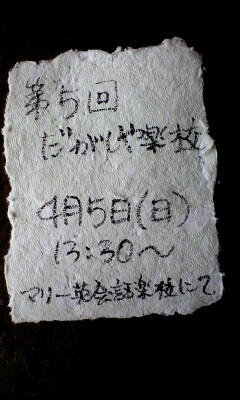 第5回
だがしや楽校
4月5日(日)
13:30〜
マリー英会話楽校にて